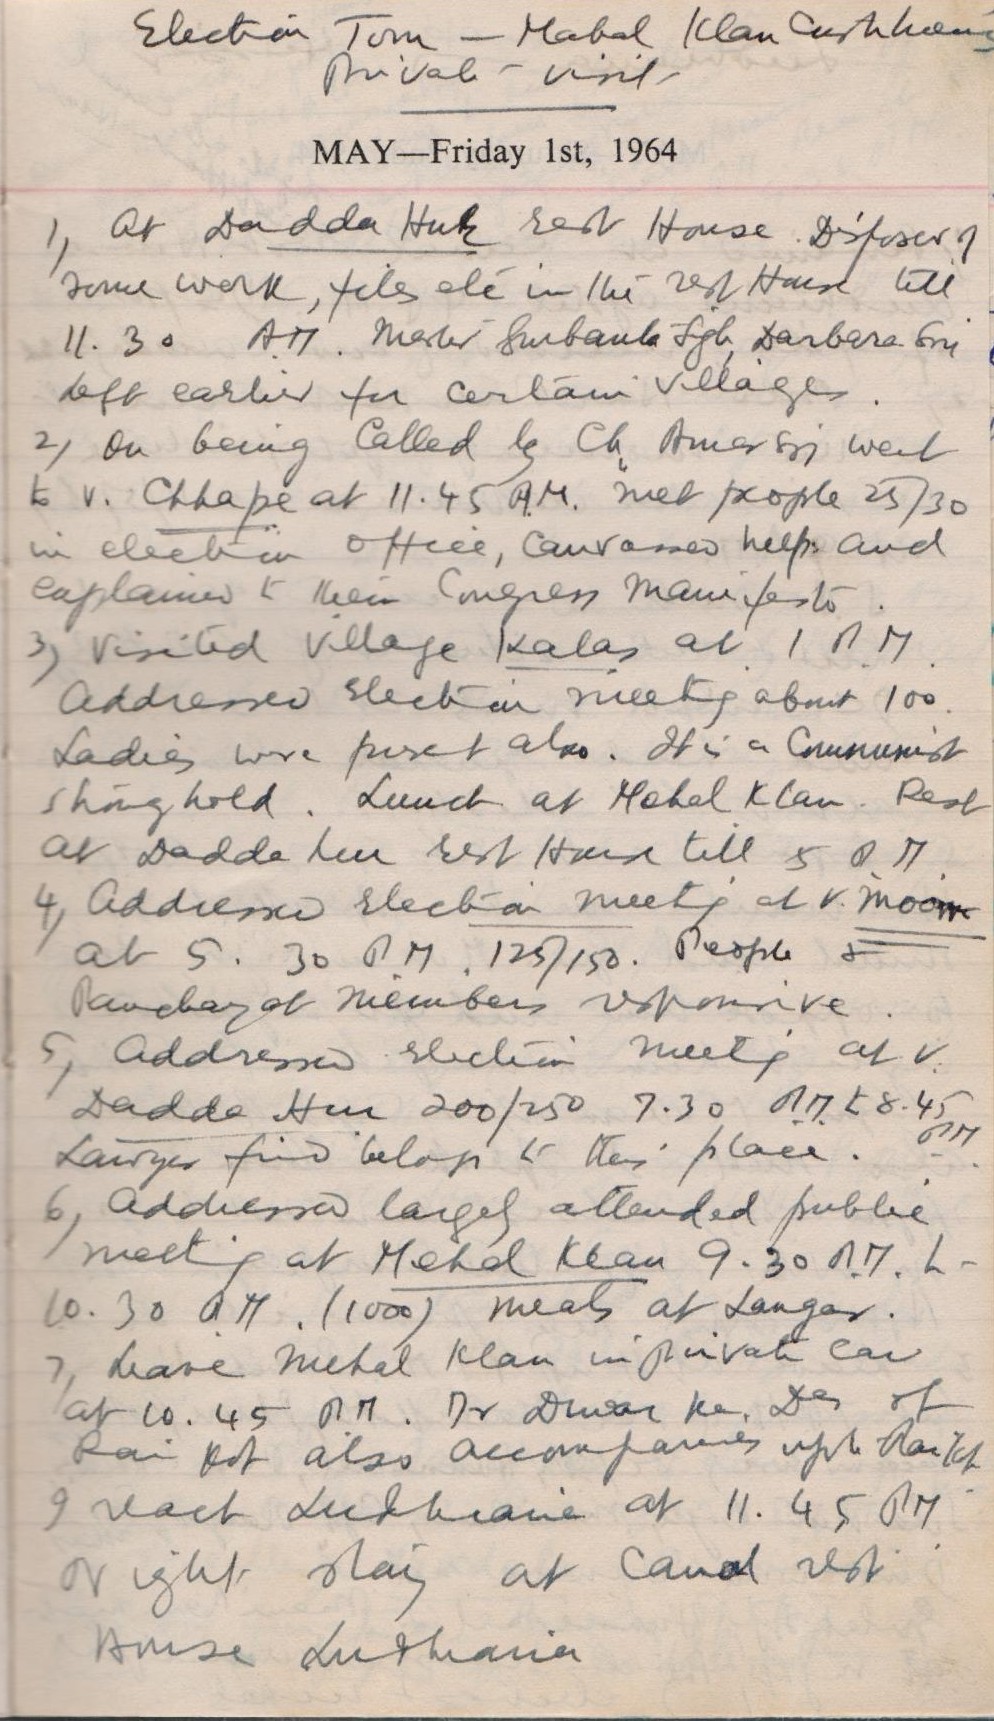 Election Tour — Mahal Klan
Private - visit
MAY—Friday 1st, 1964
1, At Dadda Hur rest House. Disposed of
some work, files etc in the rest House till
11.30 A.M. Master Gurbank Sgh, Darbara Sin
left earlier for certain villages.
2, On being Called by Ch. Amar Sin went
to v. Chhape at 11.45 A.M. met people 25/30
in election office, canvassed help and
explained to them Congress Manifesto.
3, Visited Village Kalas at 1 P.M.
Addressed Election meeting about 100.
Ladies were present also. It is a Communist
strong hold. Lunch at Mehal Klan. Rest
at Dadda hur rest House till 5 P.M
4, Addressed Election meeting at v. Moom
at 5.30 P M. 125/150. People &
Panchayat members responsive.
5, Addressed election meeting at v.
Dadda Hur 200/250 7.30 P.M. to 8.45
PM
Lawyer friend belongs to this place.
6, Addressed largely attended public
meeting at Mehal Klan 9.30 P.M. to
10.30 P M. (1000) meals at Langar.
7, Leave Mehal Klan in private Car
at 10.45 P M. Dr Dwarka Das of
Rai Kot also accompanies upto Raikot
9 reach Ludhiana at 11.45 P M
Night stay at Canal rest
House Ludhiana